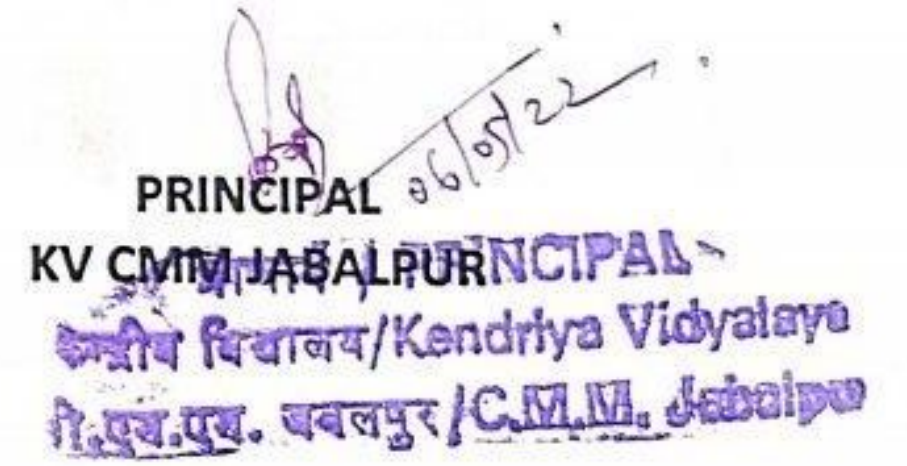 06/05/22
PRINCIPAL
KV CMM JABALPUR
प्राचार्य / PRINCIPAL
केन्द्रीय विद्यालय/Kendriya Vidyalaya
सी.एम.एम. जबलपुर/C.M.M. Jabalpur